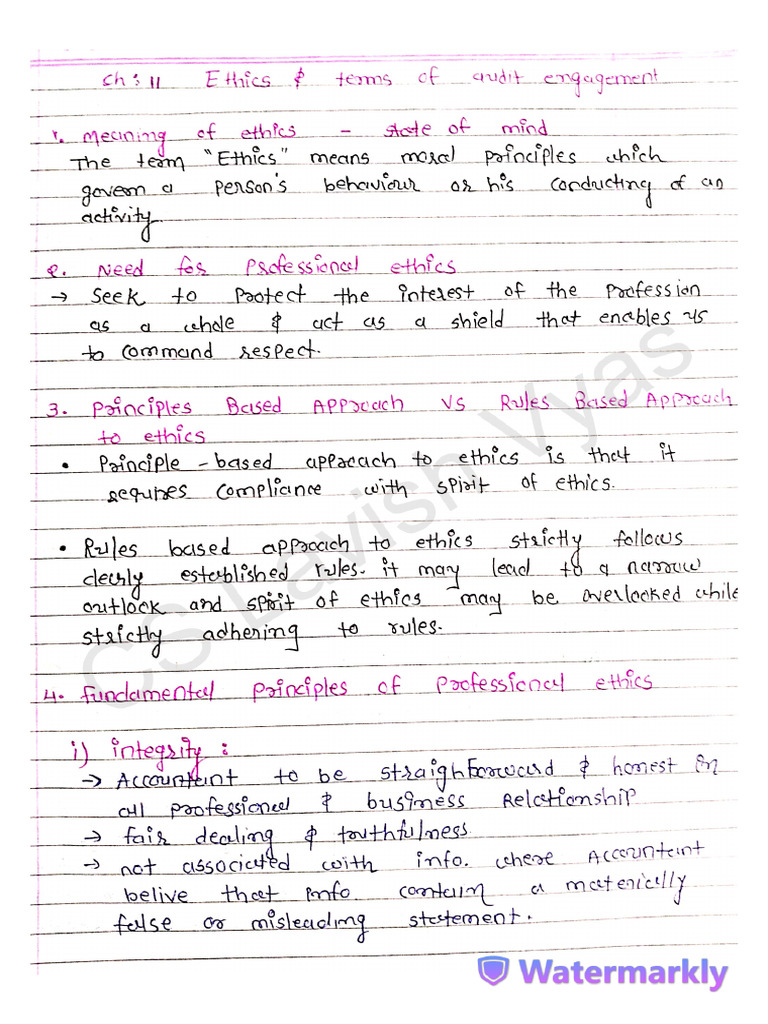 Ch: 11 Ethics & terms of audit engagement
1. Meaning of ethics - state of mind
The term "Ethics" means moral principles which
govern a person's behaviour or his conducting of an
activity.
2. Need for Professional ethics
→ Seek to Protect the interest of the Profession
as a whole & act as a shield that enables us
to command respect.
3. Principles Based Approach VS Rules Based Approach
to ethics
• Principle-based approach to ethics is that it
requires compliance with spirit of ethics.
• Rules based approach to ethics strictly follows
clearly established rules. it may lead to a narrow
outlook and spirit of ethics may be overlooked while
strictly adhering to rules.
4. fundamental principles of Professional ethics
i) integrity :
→ Accountant to be straighforward & honest in
all professional & business Relationship
→ fair dealing & truthfulness
→ not associated with info. where Accountant
belive that info. contain a materially
false or misleading statement.
CS Lavish Vyas
Watermarkly